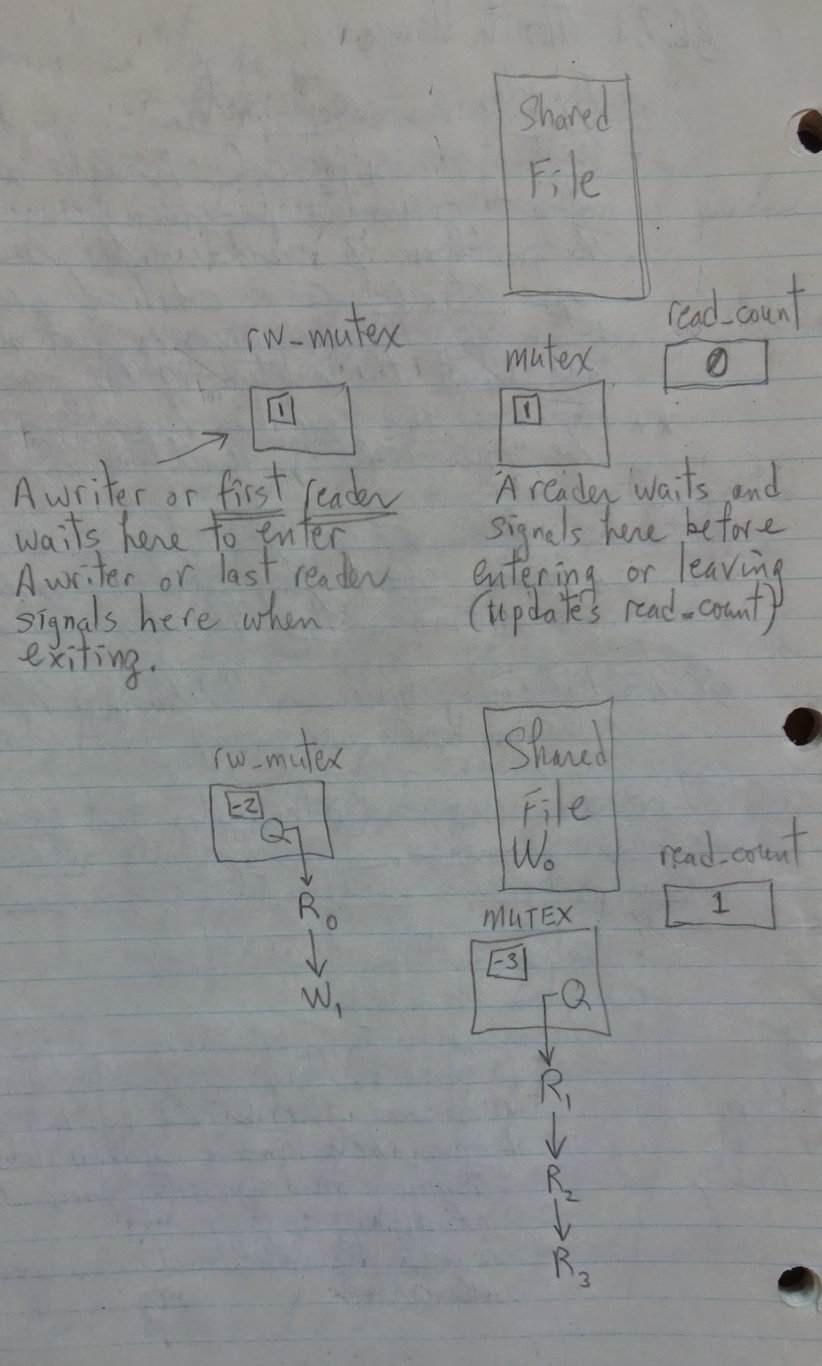 Shared
File
read_count
0
rw-mutex
1
mutex
1
A writer or first reader
waits here to enter
A writer or last reader
signals here when
exiting.
A reader waits and
signals here before
entering or leaving
(updates read_count)
rw_mutex
-2
Q
R0
W1
Shared
File
W0
read_count
1
MUTEX
-3
Q
R1
R2
R3